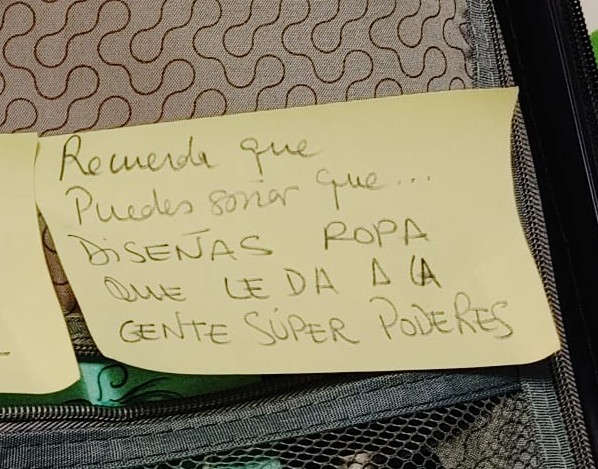 Recuerda que
Puedes soñar que...
DISEÑAS ROPA
QUE LE DA A LA
GENTE SÚPER PODERES